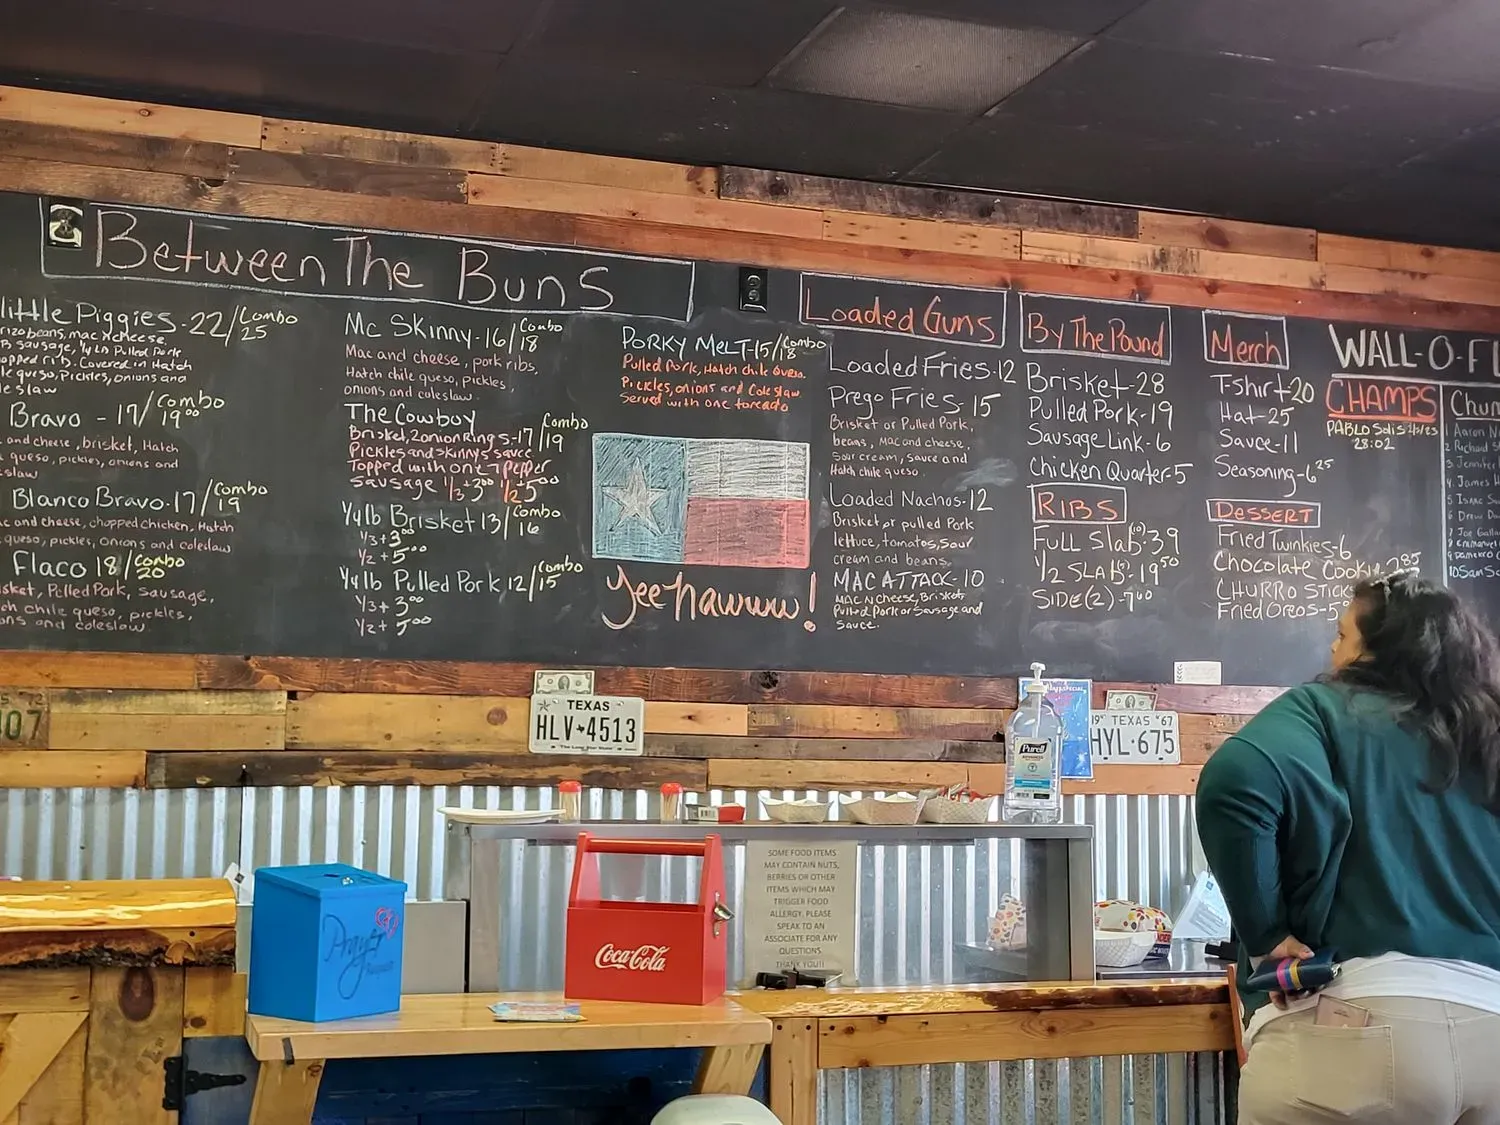 Between The Buns
little Piggies-22/Combo 25
beans, mac n cheese,
sausage, 1/4 lb Pulled Pork
ribs. Covered in Hatch
queso, Pickles, onions and
slaw
Bravo - 17/Combo 19⁰⁰
and cheese, brisket, Hatch
queso, pickles, onions and
slaw
Blanco Bravo-17/Combo 19
and cheese, chopped chicken, Hatch
queso, pickles, onions and coleslaw
Flaco 18/Combo 20
Pulled Pork, Sausage,
chile queso, pickles,
and coleslaw.
Mc Skinny-16/Combo 18
Mac and cheese, pork ribs,
Hatch chile queso, pickles,
onions and coleslaw.
The Cowboy
Brisket, 2 onion Rings-17/Combo 19
Pickles and skinnys sauce
Topped with one pepper
sausage 1/3+3⁰⁰ 1/2+5⁰⁰
1/4 lb Brisket 13/Combo 16
1/3+3⁰⁰
1/2+5⁰⁰
1/4 lb Pulled Pork 12/Combo 15
1/3+3⁰⁰
1/2+5⁰⁰
PORKY MELT-15/Combo 18
Pulled Pork, Hatch chile Queso.
Pickles, onions and Coleslaw.
Served with one toreado
Yee hawww!
Loaded Guns
Loaded Fries-12
Prego Fries-15
Brisket or Pulled Pork,
beans, Mac and cheese,
Sour cream, sauce and
Hatch chile queso.
Loaded Nachos-12
Brisket or pulled Pork
lettuce, tomatos, Sour
cream and beans.
MAC ATTACK-10
MAC N Cheese, Brisket,
Pulled Pork or Sausage and
Sauce.
By The Pound
Brisket-28
Pulled Pork-19
Sausage Link-6
Chicken Quarter-5
RIBS
Full Slab(10)-39
1/2 SLAB(5)-19⁵⁰
SIDE(2)-7⁰⁰
Merch
T-shirt-20
Hat-25
Sauce-11
Seasoning-6²⁵
DESSERT
Fried Twinkies-6
Chocolate Cookie-2.85
CHURRO STICK
Fried Oreos-5
WALL-O-F
CHAMPS
PABLO Solis
28:02
Chum
1 Aaron
2 Richard
3 Jennifer
4. James H
5 Isaac
6 Drew
7 Joe
8 Emmanuel
10 Sam
07
TEXAS
HLV★4513
"The Lone Star State"
19 TEXAS "67
HYL·675
Purell
ADVANCED
SOME FOOD ITEMS
MAY CONTAIN NUTS,
BERRIES OR OTHER
ITEMS WHICH MAY
TRIGGER FOOD
ALLERGY. PLEASE
SPEAK TO AN
ASSOCIATE FOR ANY
QUESTIONS.
THANK YOU!!
Prayer
Coca-Cola